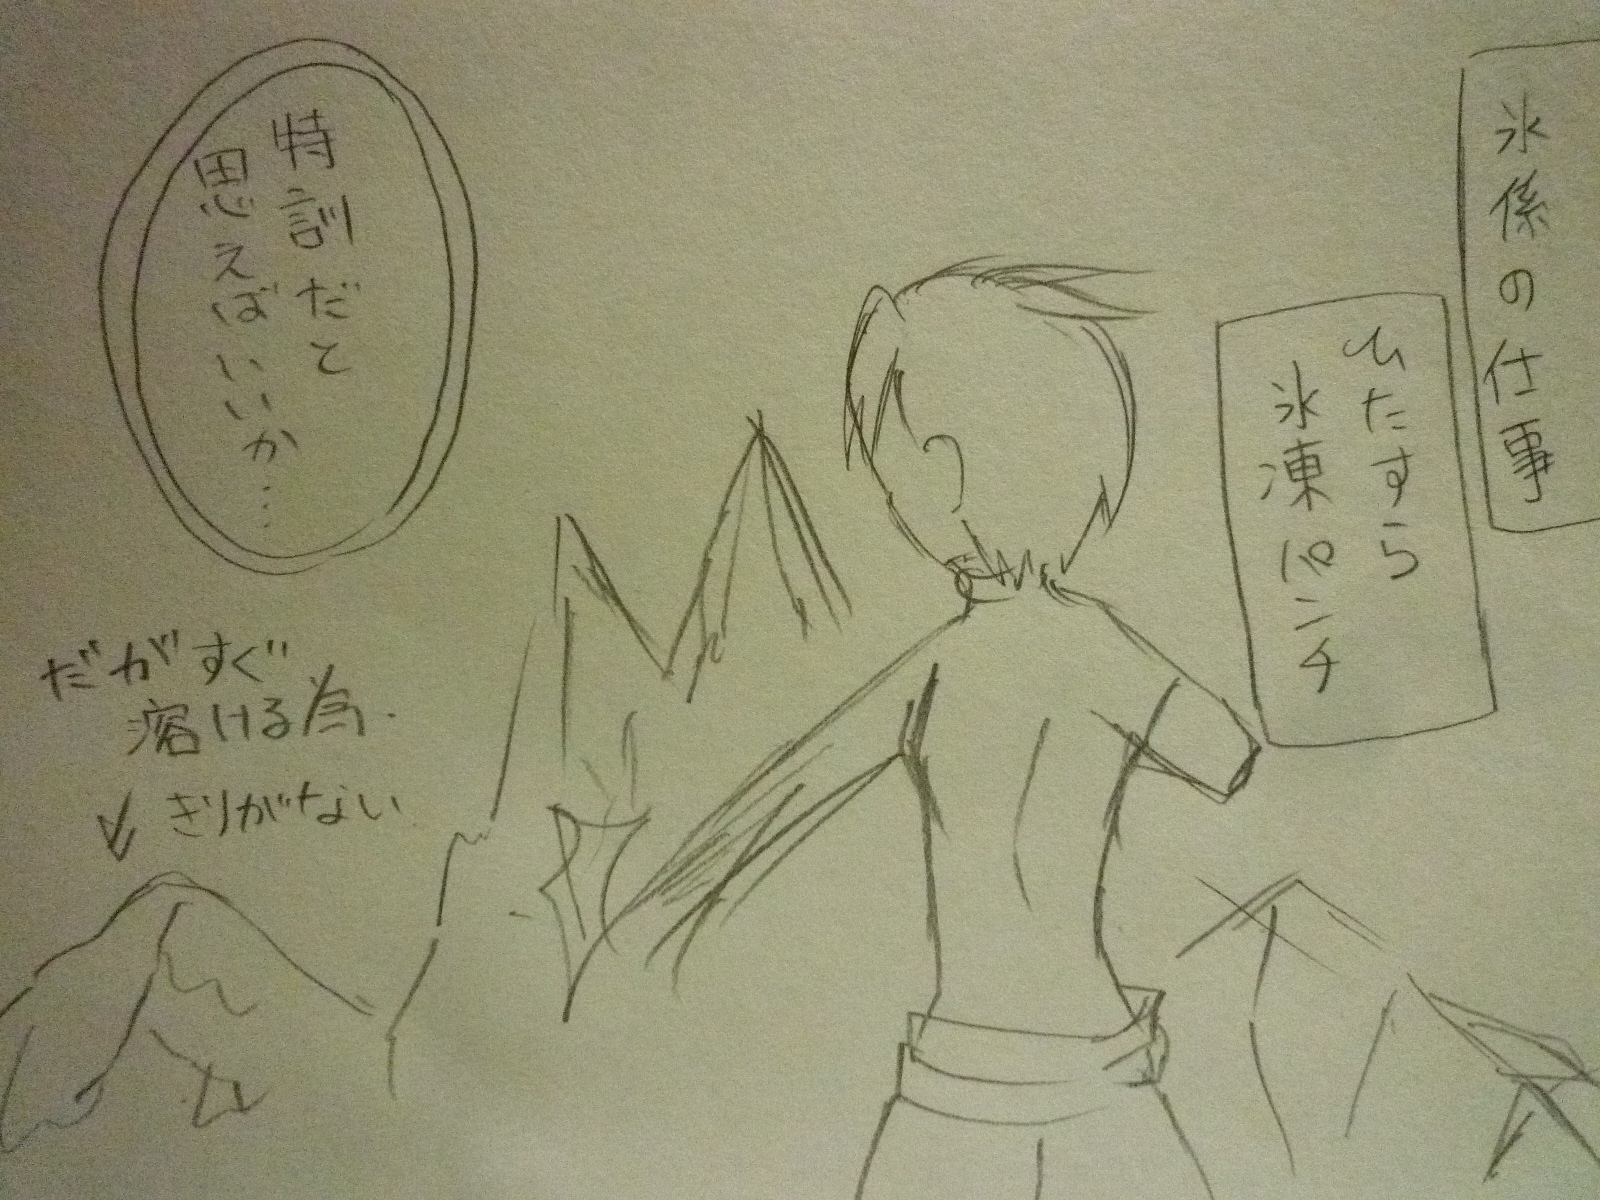 氷係の仕事
ひたすら
氷凍パンチ
特訓だと
思えばいいか…
だがすぐ
溶ける為
きりがない